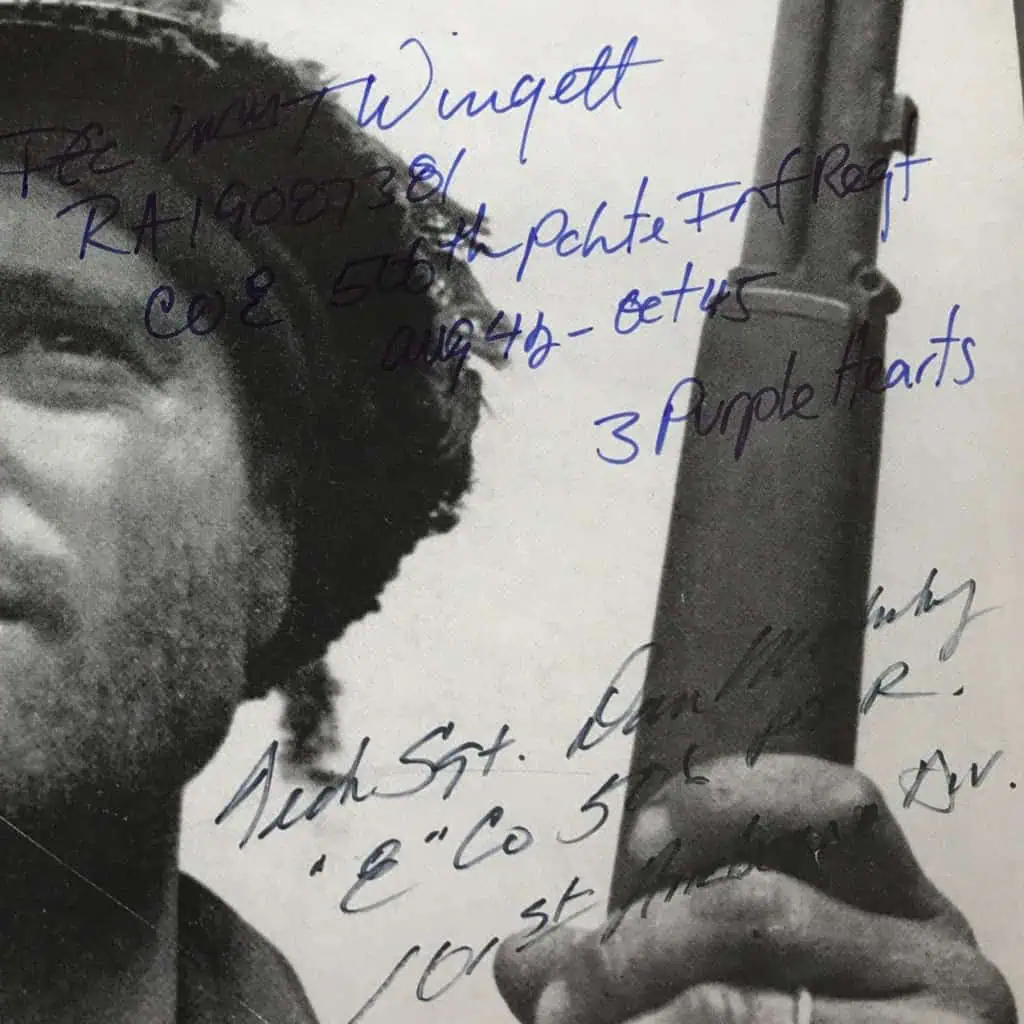 Pfc Wm T Wingett
RA19087381
CO E 506th Pchte Inf Regt
aug 42 - Oct 45
3 Purple Hearts
Tech Sgt. Dan
"E" Co 506 P.I.R.
101st Airborne Div.